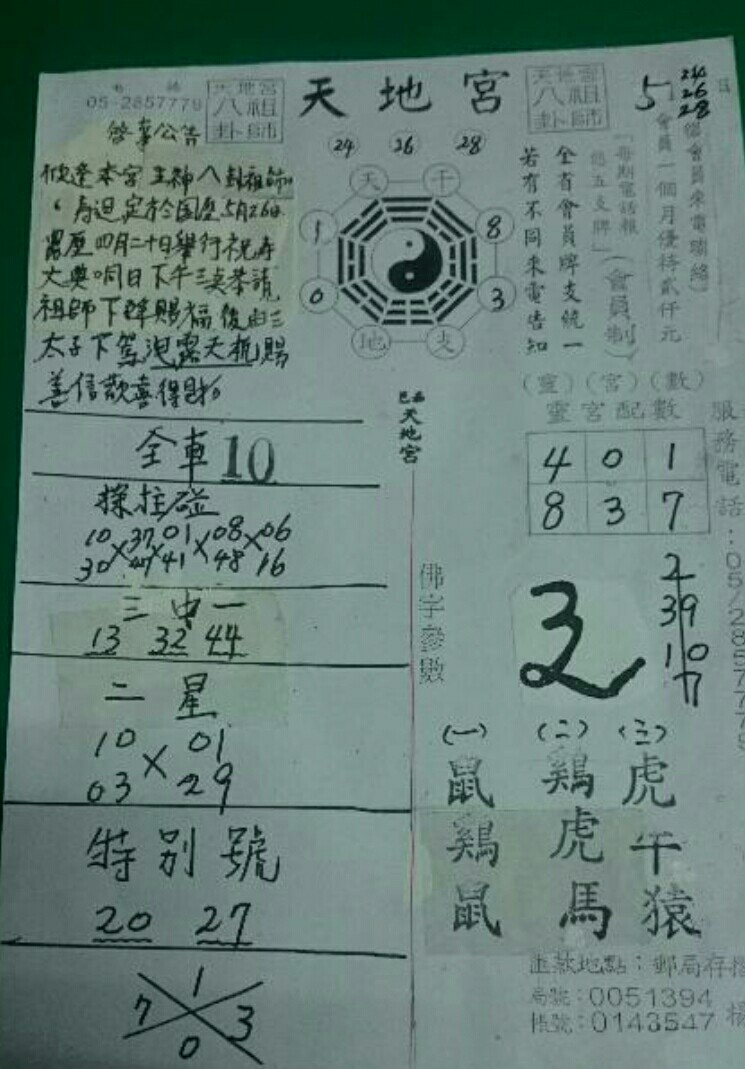 天地宮
05-2857779
天地宮
八祖
卦師
天地宮
八祖
卦師
啓事公告
欣逢本宮主神八卦祖師
壽迴定於国歷5月26日
農歷四月二十日舉行祝壽
大典同日下午三点恭請
祖師下降賜福後由三
太子下駕洩露天机賜
善信歡喜得財
5
24
26
28
24 26 28
天 干
1 8
0 3
地 支
會員來電
會員一個月優待貳仟元
「每期電話報
您五支牌」(會員制)
全省會員牌支統一
若有不同來電告知
(靈)(宮)(數)
靈宮配數
4 0 1
8 3 7
服務電話:05/2857779
天地宮
全車10
採柱碰
10×37×01×08×06
30 47 41 48 16
三中一
13 32 44
二星
10×01
03 29
特別號
20 27
1
7 3
0
佛字參數
2
39
10
7
(一) (二) (三)
鼠 鷄 虎
鷄 虎 牛
鼠 馬 猿
匯款地點:郵局存
局號:0051394
帳號:0143547